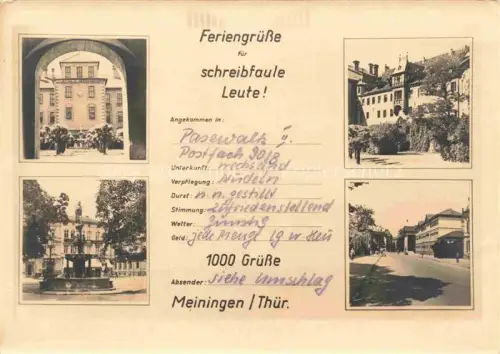 Feriengrüße
für
schreibfaule
Leute!
Angekommen in:
Pasewalk
Postfach 30/8
Unterkunft:
Verpflegung: Nudeln
Durst: n. n. gestillt
Stimmung: zufriedenstellend
Wetter:
Geld: jede Menge wie Heu
1000 Grüße
Absender: siehe Umschlag
Meiningen / Thür.